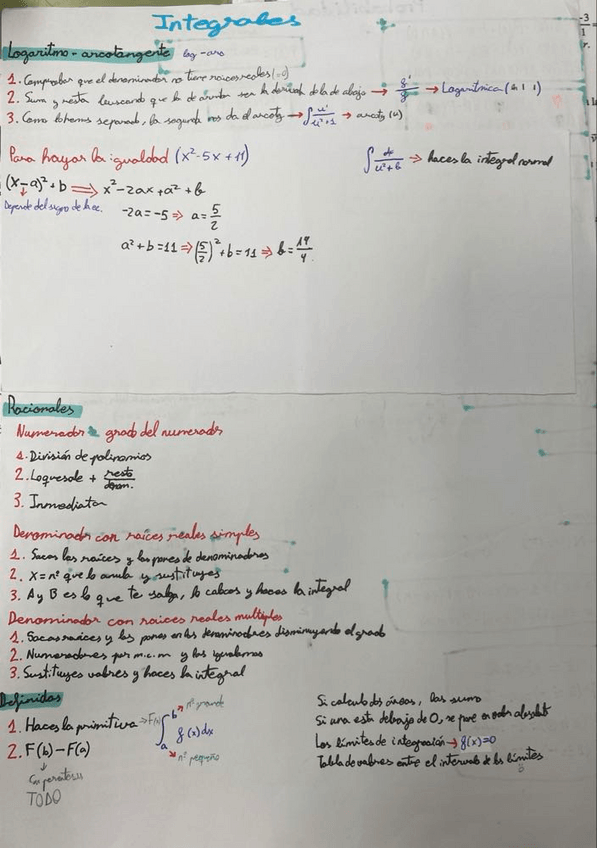 Integrales
Logaritmo - arcotangente log-arc
1. Comprobar que el denominador no tiene raices reales (=0)
2. Suma y resta buscando que la de arriba sea la derivada de la de abajo → g'/g → Logarítmica
3. Como lo hemos separado, la segunda nos da el arcotg → ∫ u'/u²+1 → arcotg (u)
Para hayar la igualdad (x²-5x+11)
∫ dx/u²+b ⇒ haces la integral normal
(x-a)²+b ⟹ x²-2ax+a²+b
Depende del signo de la ec.
-2a=-5 ⇒ a=5/2
a²+b=11 ⇒ (5/2)²+b=11 ⇒ b=19/4
Racionales
Numerador grado del numerador
1. División de polinomios
2. Loquesale + resto/denom.
3. Inmediata
Denominador con raíces reales simples
1. Sacas las raíces y las pones de denominadores
2. X = nº que lo anula y sustituyes
3. A y B es lo que te salga, lo calocas y haces la integral
Denominador con raices reales multiples
1. Sacas raices y las pones en los denominadores disminuyendo el grado
2. Numeradores por m.c.m y los igualamos
3. Sustituyes valores y haces la integral
Definidas
1. Haces la primitiva → F(x)
∫ b a g(x)dx
nº grande
nº pequeño
2. F(b)-F(a)
Con parentesis
TODO
Si calculo dos áreas, las sumo
Si una esta debajo de 0, se pone en valor absoluto
Los límites de integración → g(x)=0
Tabla de valores entre el intervalo de los límites
-3/1